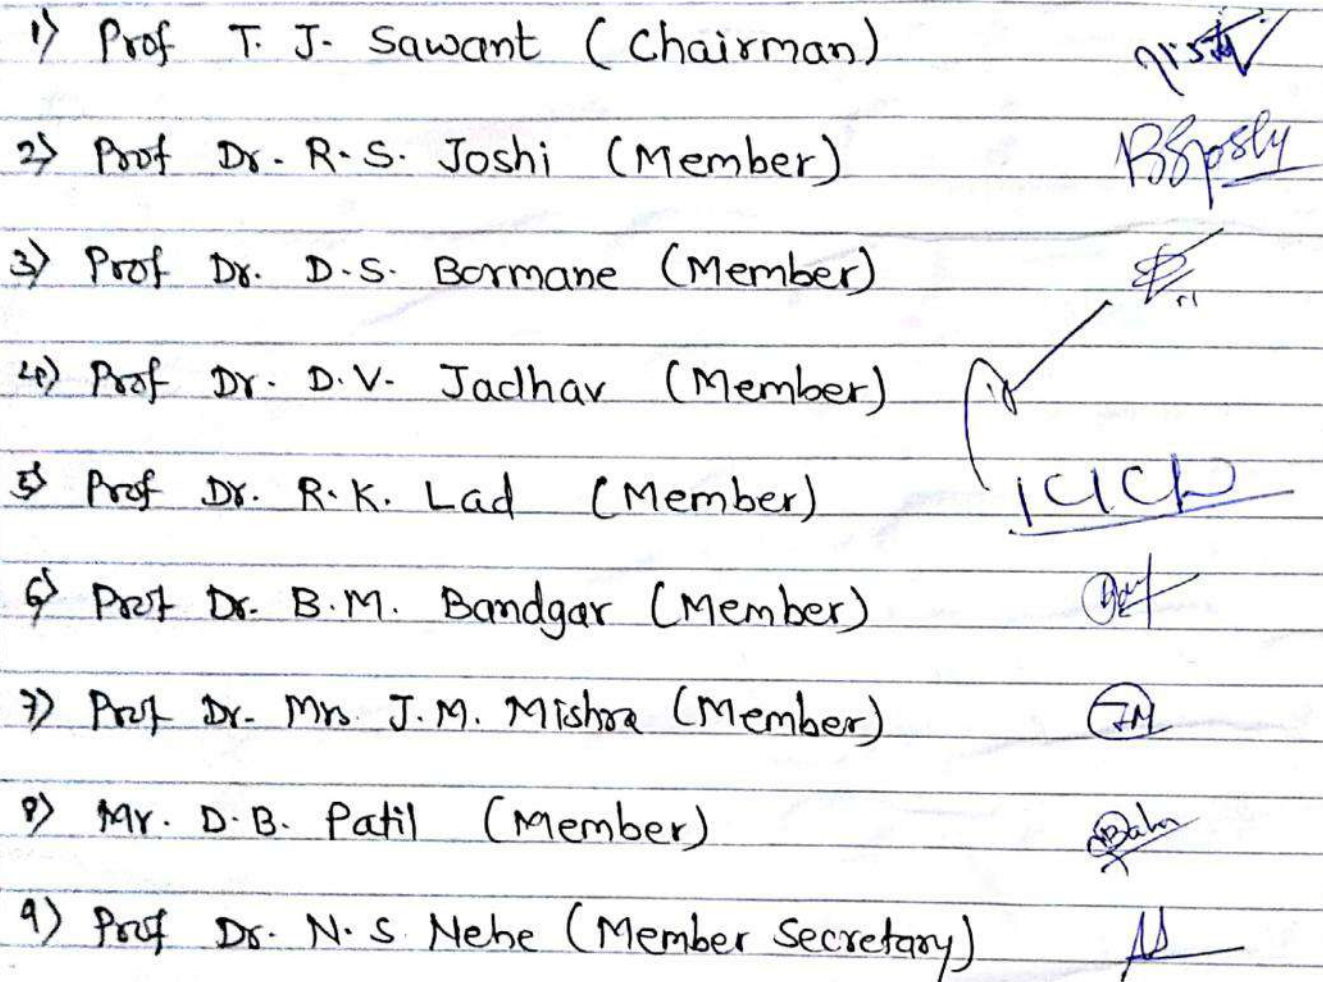 1) Prof T. J. Sawant (Chairman)
2) Prof Dr. R. S. Joshi (Member)
3) Prof Dr. D.S. Bormane (Member)
4) Prof Dr. D.V. Jadhav (Member)
5) Prof Dr. R.K. Lad (Member)
6) Prof Dr. B.M. Bandgar (Member)
7) Prof Dr. Mrs. J.M. Mishra (Member)
8) Mr. D.B. Patil (Member)
9) Prof Dr. N.S. Nehe (Member Secretary)